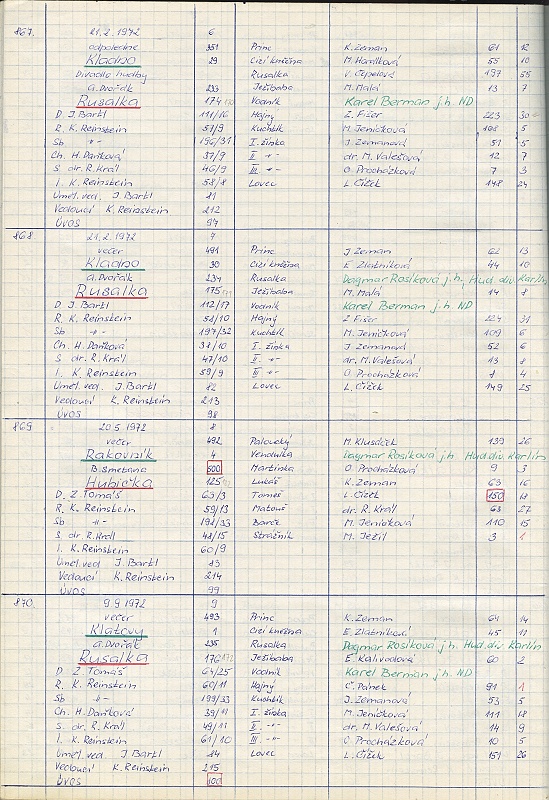 867. 21. 2. 1972 6
odpoledne 351 Princ K. Zeman 61 12
Kladno 29 Cizí kněžna M. Hanžlíková 55 10
Divadlo hudby Rusalka V. Čepelová 197 55
A. Dvořák 233 Ježibaba M. Malá 13 7
Rusalka 174 Vodník Karel Berman j.h. ND
D J. Bartl 111/16 Hajný Z. Fišer 223 30
R. K. Reinstein 57/9 Kuchtík M. Jeničková 108 5
Sb -"- 196/31 I. žínka J. Zemanová 51 5
Ch. H. Daňková 37/9 II -"- dr. M. Valešová 12 7
S dr. R. Král 46/9 III -"- O. Procházková 7 3
I. K. Reinstein 58/8 Lovec L. Čížek 148 24
Uměl. ved. J. Bartl 81
Vedoucí K. Reinstein 212
Úvos 97
868. 21. 2. 1972 7
večer 491 Princ J. Zeman 62 13
Kladno 30 Cizí kněžna E. Zlatníková 44 10
A. Dvořák 234 Rusalka Dagmar Rosíková j.h. Hud. div. Karlín
Rusalka 175 Ježibaba M. Malá 14 8
D J. Bartl 112/17 Vodník Karel Berman j.h. ND
R. K. Reinstein 58/10 Hajný Z Fišer 224 31
Sb -"- 197/32 Kuchtík M. Jeničková 109 6
Ch. H. Daňková 38/10 I. žínka J. Zemanová 52 6
S dr. R. Král 47/10 II -"- dr. M. Valešová 13 8
I. K. Reinstein 59/9 III -"- O. Procházková 8 4
Uměl. ved. J. Bartl 82 Lovec L. Čížek 149 25
Vedoucí K. Reinstein 213
Úvos 98
869 20. 5. 1972 8
večer 492 Palouský M. Klusáček 139 26
Rakovník 4 Vendulka Dagmar Rosíková j.h. Hud. div. Karlín
B. Smetana 500 Martinka O. Procházková 9 3
Hubička 125 Lukáš K. Zeman 63 16
D. Z. Tomáš 63/3 Tomeš L. Čížek 150 18
R. K. Reinstein 59/13 Matouš dr. R. Král 63 27
Sb -"- 198/33 Barče M. Jeničková 110 15
S dr. R. Král 48/15 Strážník M. Ježil 3 1
I. K. Reinstein 60/9
Uměl. ved J. Bartl 83
Vedoucí K. Reinstein 214
Úvos 99
870. 9. 9. 1972 9
večer 493 Princ K. Zeman 64 14
Klatovy 1 Cizí kněžna E. Zlatníková 45 11
A. Dvořák 235 Rusalka Dagmar Rosíková j.h. Hud. div. Karlín
Rusalka 176 Ježibaba E. Kalivodová 60 2
D Z. Tomáš 64/25 Vodník Karel Berman j.h. ND
R. K. Reinstein 60/11 Hajný Č. Pánek 91 1
Sb -"- 199/33 Kuchtík J. Zemanová 53 5
Ch. H. Daňková 39/11 I. žínka M. Jeničková 111 18
S. dr. R. Král 49/11 II -"- dr. M. Valešová 14 9
I. K. Reinstein 61/10 III -"- O Procházková 10 5
Uměl. ved J. Bartl 84 Lovec L. Čížek 151 26
Vedoucí K. Reinstein 215
Úvos 100